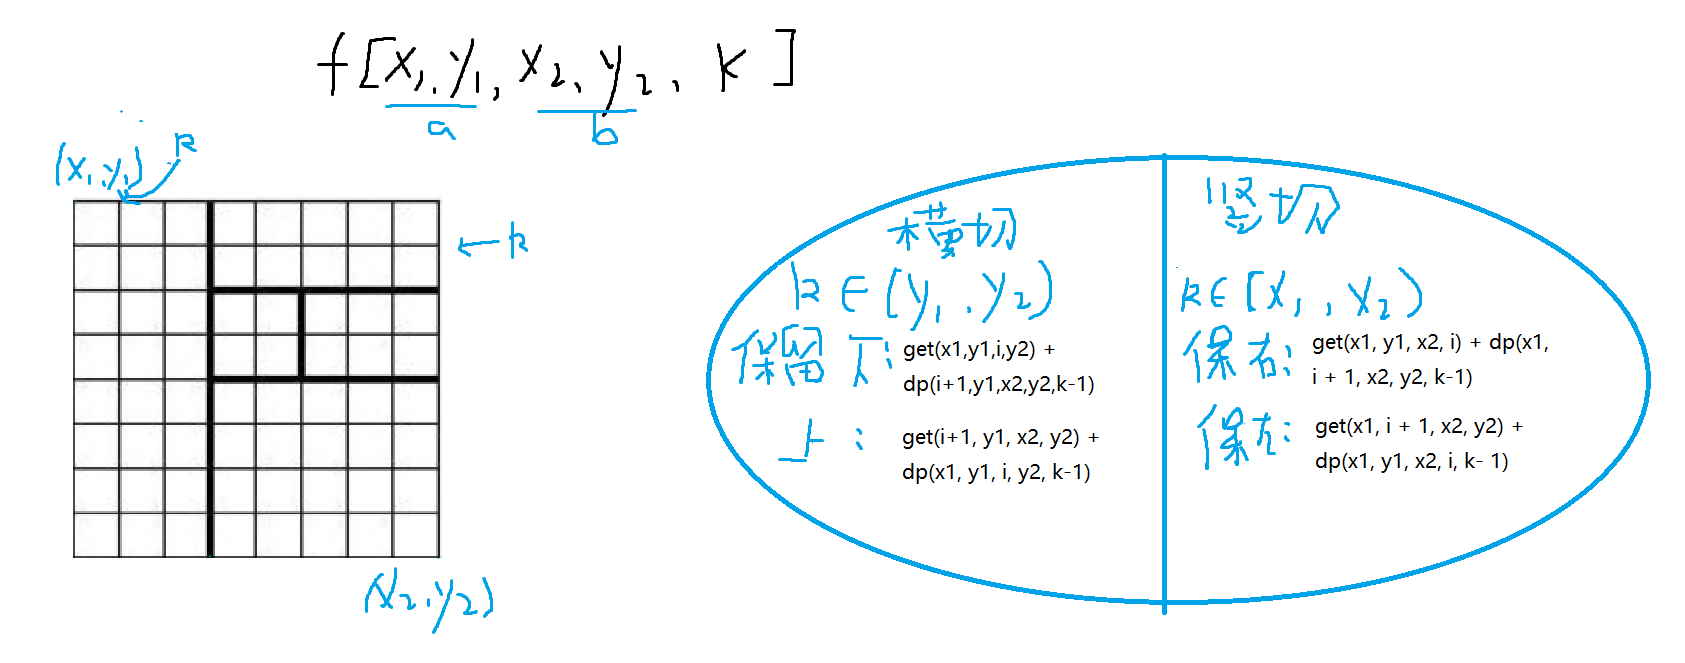 f[x₁,y₁,x₂,y₂,k]
a
b
(x₁,y₁)
k
k
(x₂,y₂)
横切
k∈(y₁,y₂)
保留下:
get(x1,y1,i,y2) +
dp(i+1,y1,x2,y2,k-1)
上:
get(i+1, y1, x2, y2) +
dp(x1, y1, i, y2, k-1)
竖切
k∈[x₁,x₂)
保右:
get(x1, y1, x2, i) + dp(x1,
i + 1, x2, y2, k-1)
保左:
get(x1, i + 1, x2, y2) +
dp(x1, y1, x2, i, k- 1)